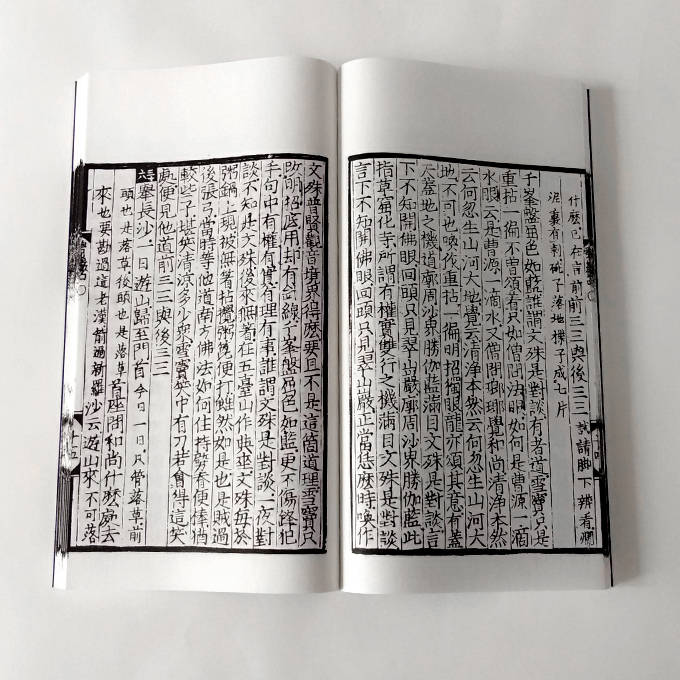 什麼已在言前前三三與後三三試請脚下辨看爛
泥裏有刺碗子落地楪子成七片
千峯盤屈色如藍誰謂文殊是對談有者道雪竇只是
重拈一徧不曾頌着只如僧問法眼如何是曹源一滴
水眼云是曹源一滴水又僧問瑯瑘覺和尚清淨本然
云何忽生山河大地覺云清淨本然云何忽生山河大
地不可也喚作重拈一徧明招獨眼龍亦頌其意有蓋
天蓋地之機道廓周沙界勝伽藍滿目文殊是對談言
下不知開佛眼回頭只見翠山巖廓周沙界勝伽藍此
指草窟化寺所謂有權實雙行之機滿目文殊是對談
言下不知開佛眼回頭只見翠山巖正當恁麼時喚作
文殊普賢觀音境界得麼要且不是這箇道理雪竇只
改明招底用却有針線千峯盤屈色如藍更不傷鋒犯
手句中有權有實有理有事誰謂文殊是對談一夜對
談不知是文殊後來無著在五臺山作典座文殊每於
粥鍋上現被無著拈攪粥篦便打雖然如是也是賊過
後張弓當時等他道南方佛法如何住持劈脊便棒猶
較些子堪笑清涼多少衆雪竇笑中有刀若會得這笑
處便見他道前三三與後三三
舉長沙一日遊山歸至門首今日一日只管落草前
頭也是落草後頭也是落草首座問和尚什麼處去
來也要勘過這老漢箭過新羅沙云遊山來不可落